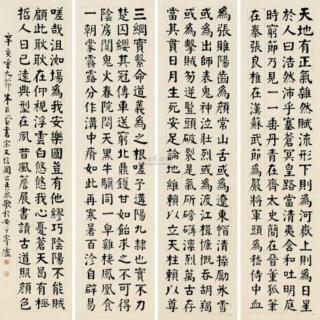 天地有正氣雜然賦流形下則為河嶽上則為日星
於人曰浩然沛乎塞蒼冥皇路當清夷含和吐明庭
時窮節乃見一一垂丹青在齊太史簡在晉董狐筆
在秦張良椎在漢蘇武節為嚴將軍頭為嵇侍中血
為張睢陽齒為顏常山舌或為遼東帽清操勵冰雪
或為出師表鬼神泣壯烈或為渡江楫慷慨吞胡羯
或為擊賊笏逆豎頭破裂是氣所磅礴凜烈萬古存
當其貫日月生死安足論地維賴以立天柱賴以尊
三綱實繫命道義為之根嗟予遘陽九隸也實不力
楚囚纓其冠傳車送窮北鼎鑊甘如飴求之不可得
陰房闃鬼火春院閟天黑牛驥同一皁雞棲鳳凰食
一朝蒙霧露分作溝中瘠如此再寒暑百沴自辟易
嗟哉沮洳場為我安樂國豈有他繆巧陰陽不能賊
顧此耿耿在仰視浮雲白悠悠我心憂蒼天曷有極
哲人日已遠典型在夙昔風簷展書讀古道照顏色
書宋文信國公正氣歌於